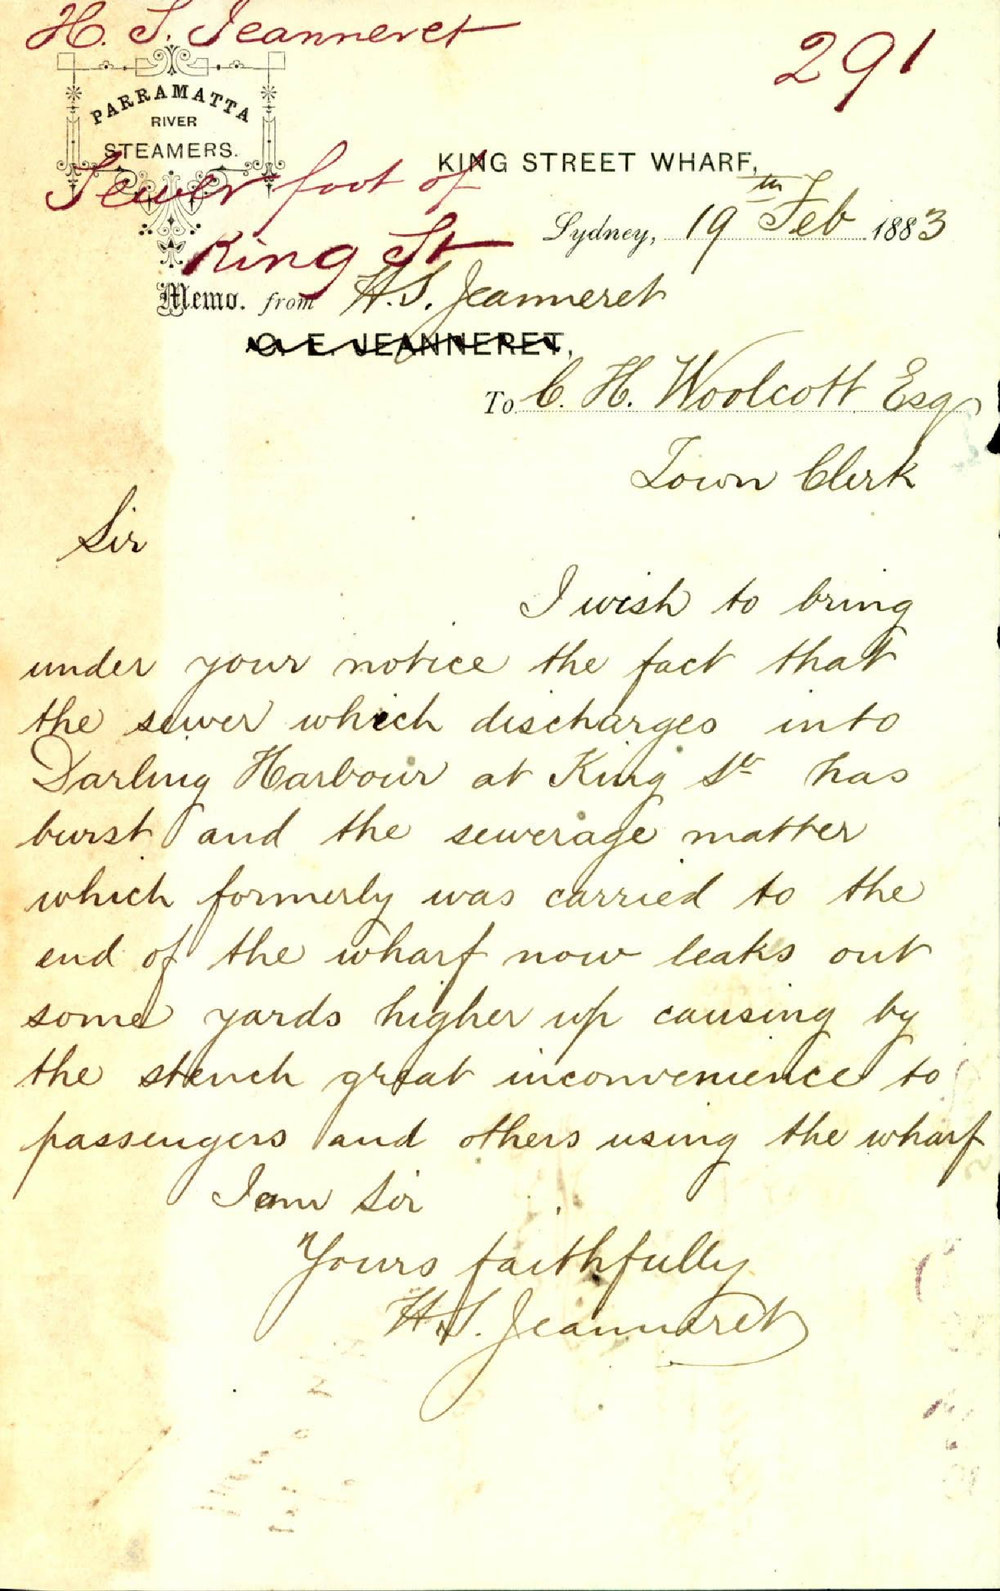 H. S. Jeanneret
291
PARRAMATTA
RIVER
STEAMERS.
Sewer foot of
King St
KING STREET WHARF,
Sydney, 19th Feb 1883
Memo. from H. S. Jeanneret
C. E. JEANNERET,
To C. H. Woolcott Esq
Town Clerk
Sir
I wish to bring
under your notice the fact that
the sewer which discharges into
Darling Harbour at King St has
burst and the sewerage matter
which formerly was carried to the
end of the wharf now leaks out
some yards higher up causing by
the stench great inconvenience to
passengers and others using the wharf
I am Sir
Yours faithfully
H. S. Jeanneret